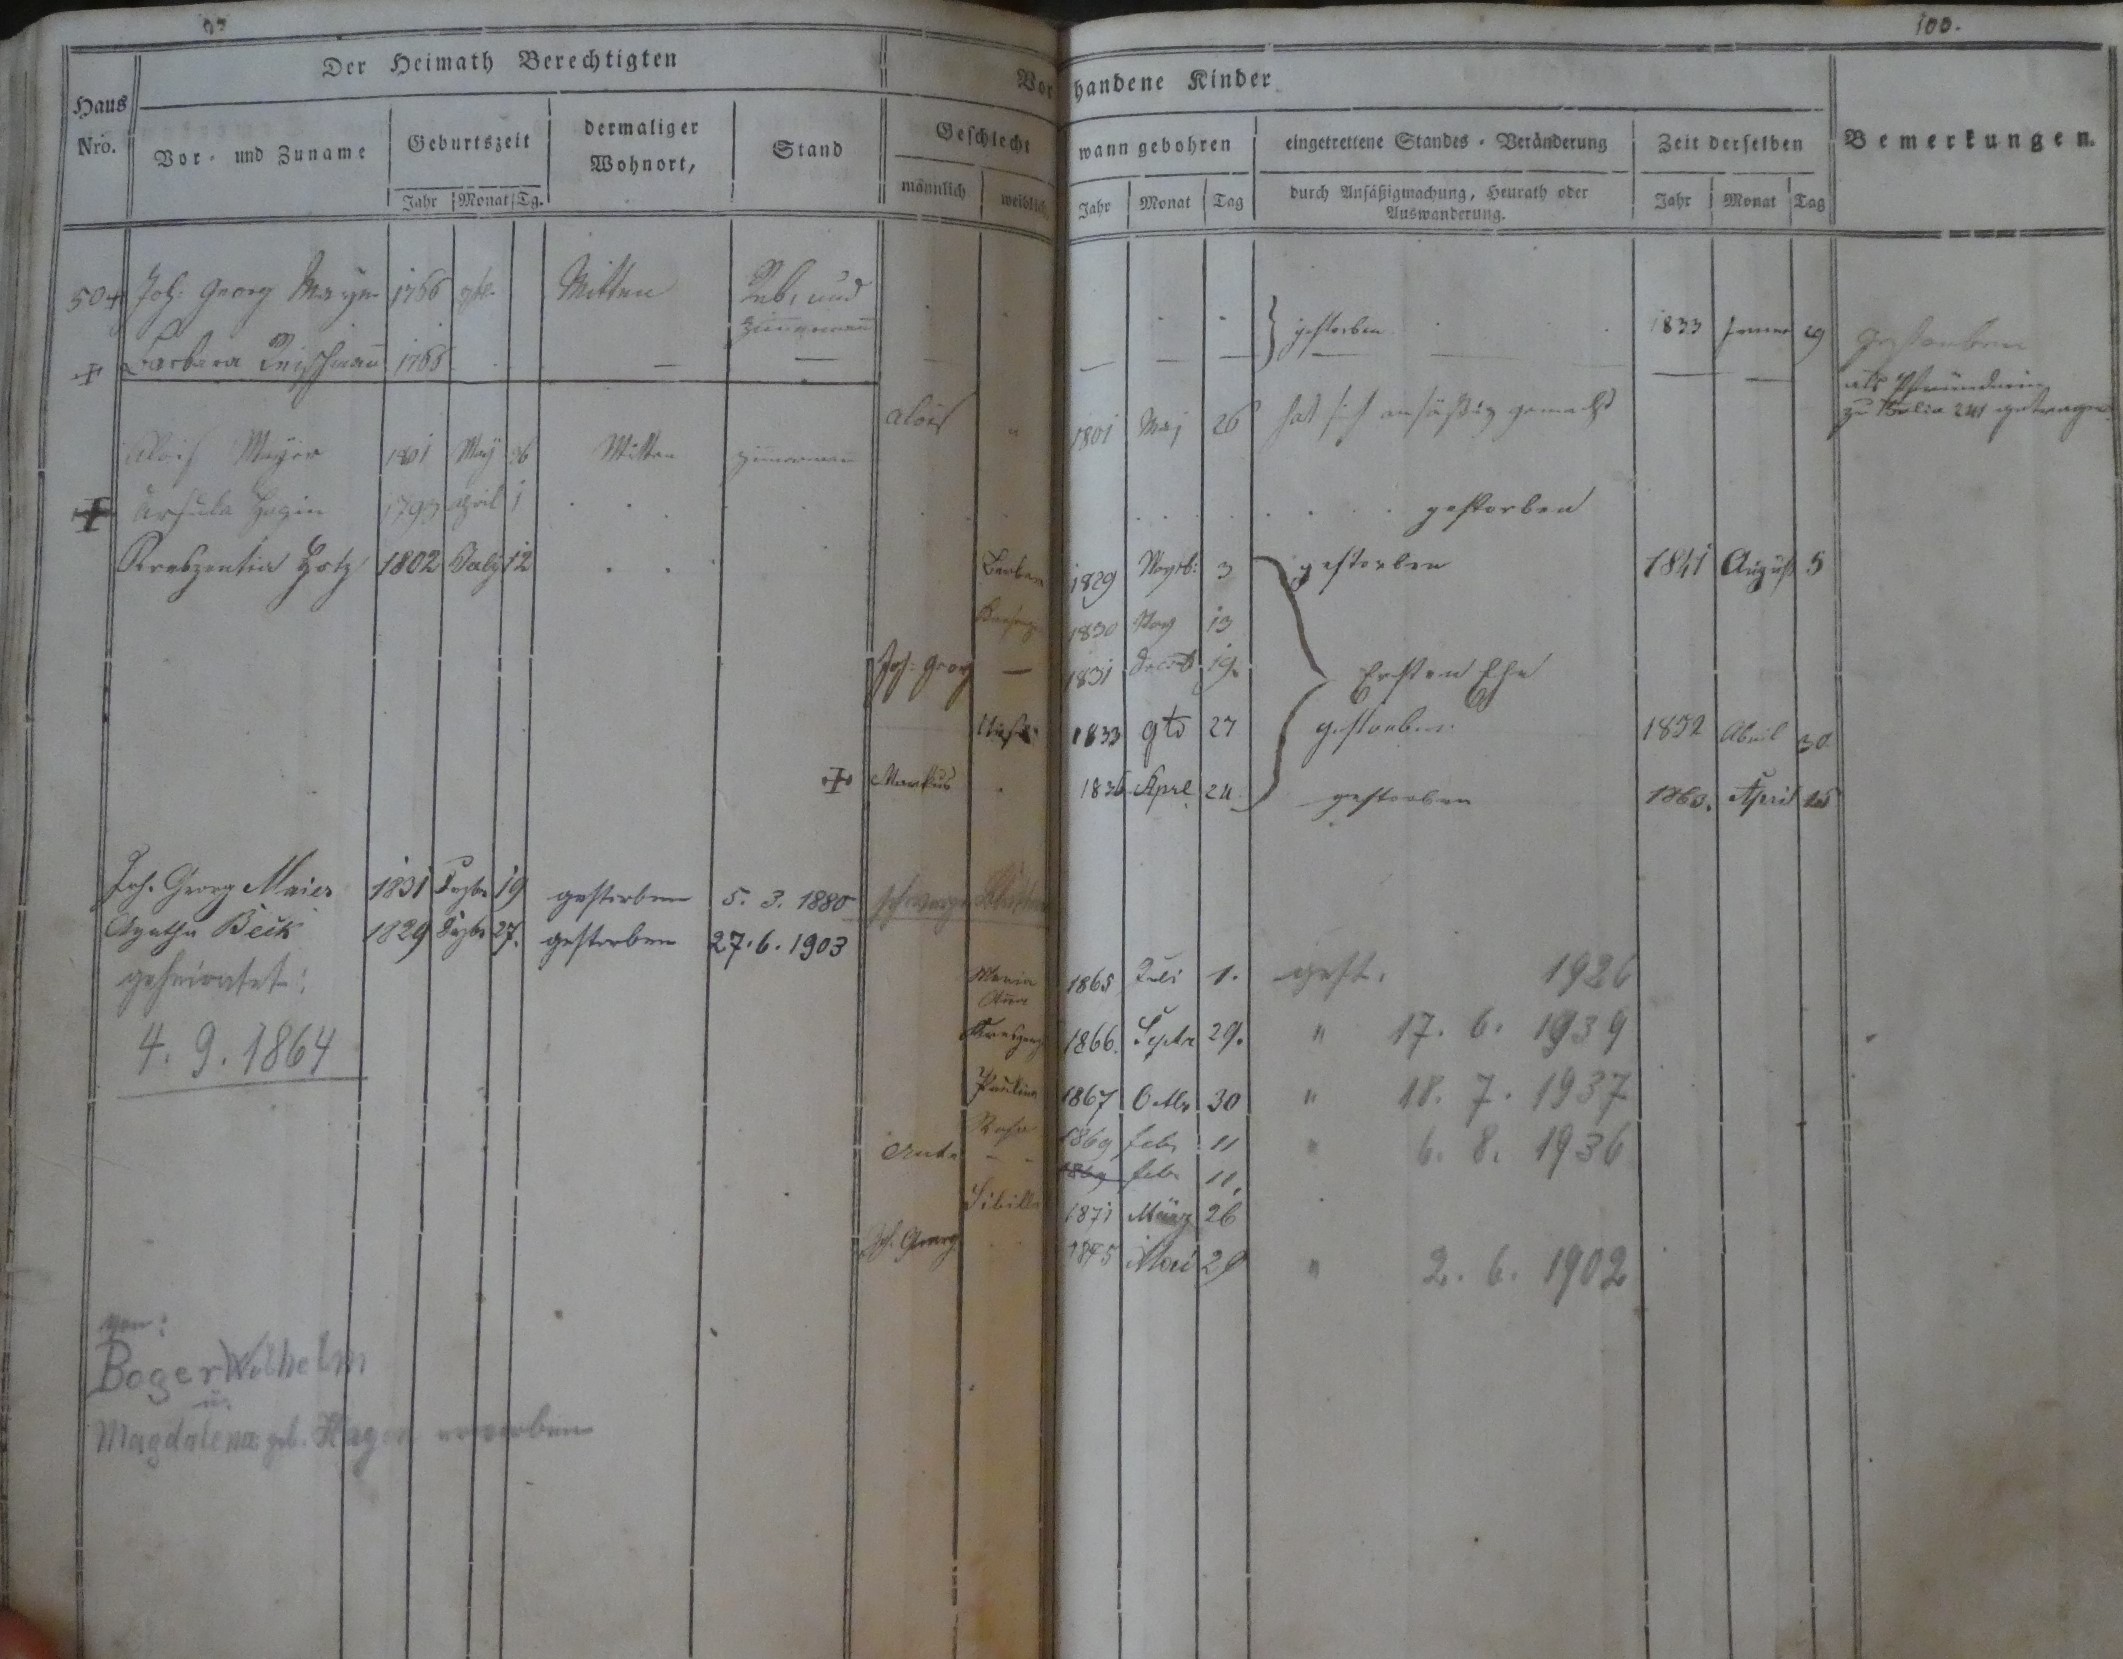 100.
Der Heimath Berechtigten
Vorhandene Kinder
Haus Nrö.
Vor- und Zuname
Geburtszeit
dermaliger Wohnort,
Stand
Geschlecht
wann gebohren
eingetrettene Standes-Veränderung
Zeit derselben
Bemerkungen.
Jahr Monat Tg.
männlich weiblich
Jahr Monat Tag
durch Ansäßigmachung, Heurath oder
Auswanderung.
Jahr Monat Tag
50 + Joh: Georg Mayer 1766 Mitten Reb. und
Zimmermann
gestorben 1833 Jenner 29 gestorben
+ Barbara 1766
als Pfründnerin
zu Folio 241 getragen
Alois " 1801 May 26 hat sich ansäßig gemacht
Alois Mayer 1801 May 26 Mitten Zimmermann
+ Ursula 1793 April 1 gestorben
Kreszentia Hotz 1802 July 12
Barbara 1829 Novb: 3 gestorben 1841 August 5
1830 Nov 13
Joh: Georg — 1831 Decb 19. Ersten Ehe
1833 9b 27 gestorben 1832 Abril 30
+ Markus 1836 Aprl 24 gestorben 1860. April 15
Joh. Georg Maier 1831 Dezbr 19 gestorben 5. 3. 1880
Agatha Beck 1829 Dezbr 27. gestorben 27. 6. 1903
geheiratet:
4. 9. 1864
Maria
Anna 1865 Juli 1. gest. 1926
Kreszenz 1866. Septr 29. " 17. 6. 1939
Paulina 1867 Octbr 30 " 18. 7. 1937
Rosa 1869 febr 11 " 6. 8. 1936
Anto - - 1869 febr 11,
Sibilla 1871 März 26
Joh. Georg 1875 Mai 29 " 2. 6. 1902
von:
Boger Wilhelm
u.
Magdalena geb. Hagen erworben